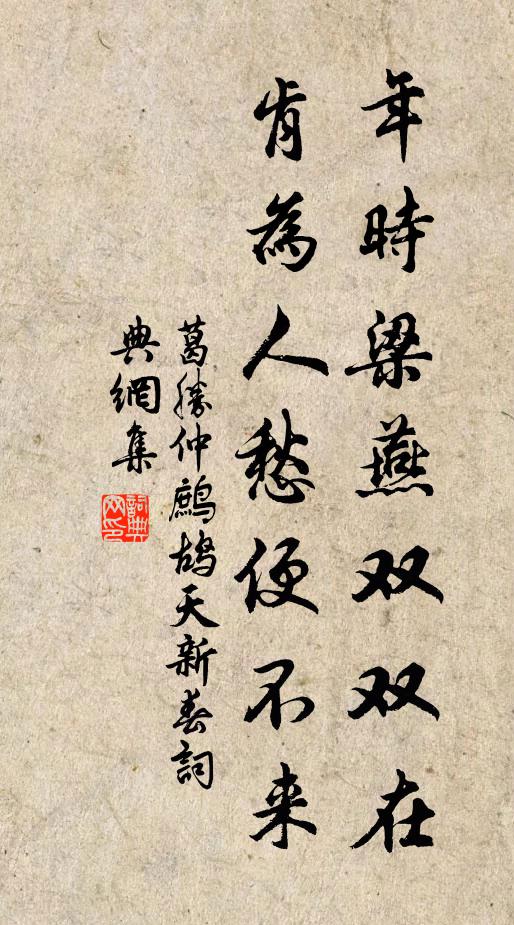 年時梁燕双双在
肯為人愁便不来
葛勝仲鷓鴣天新春詞
典網集
詞典网印